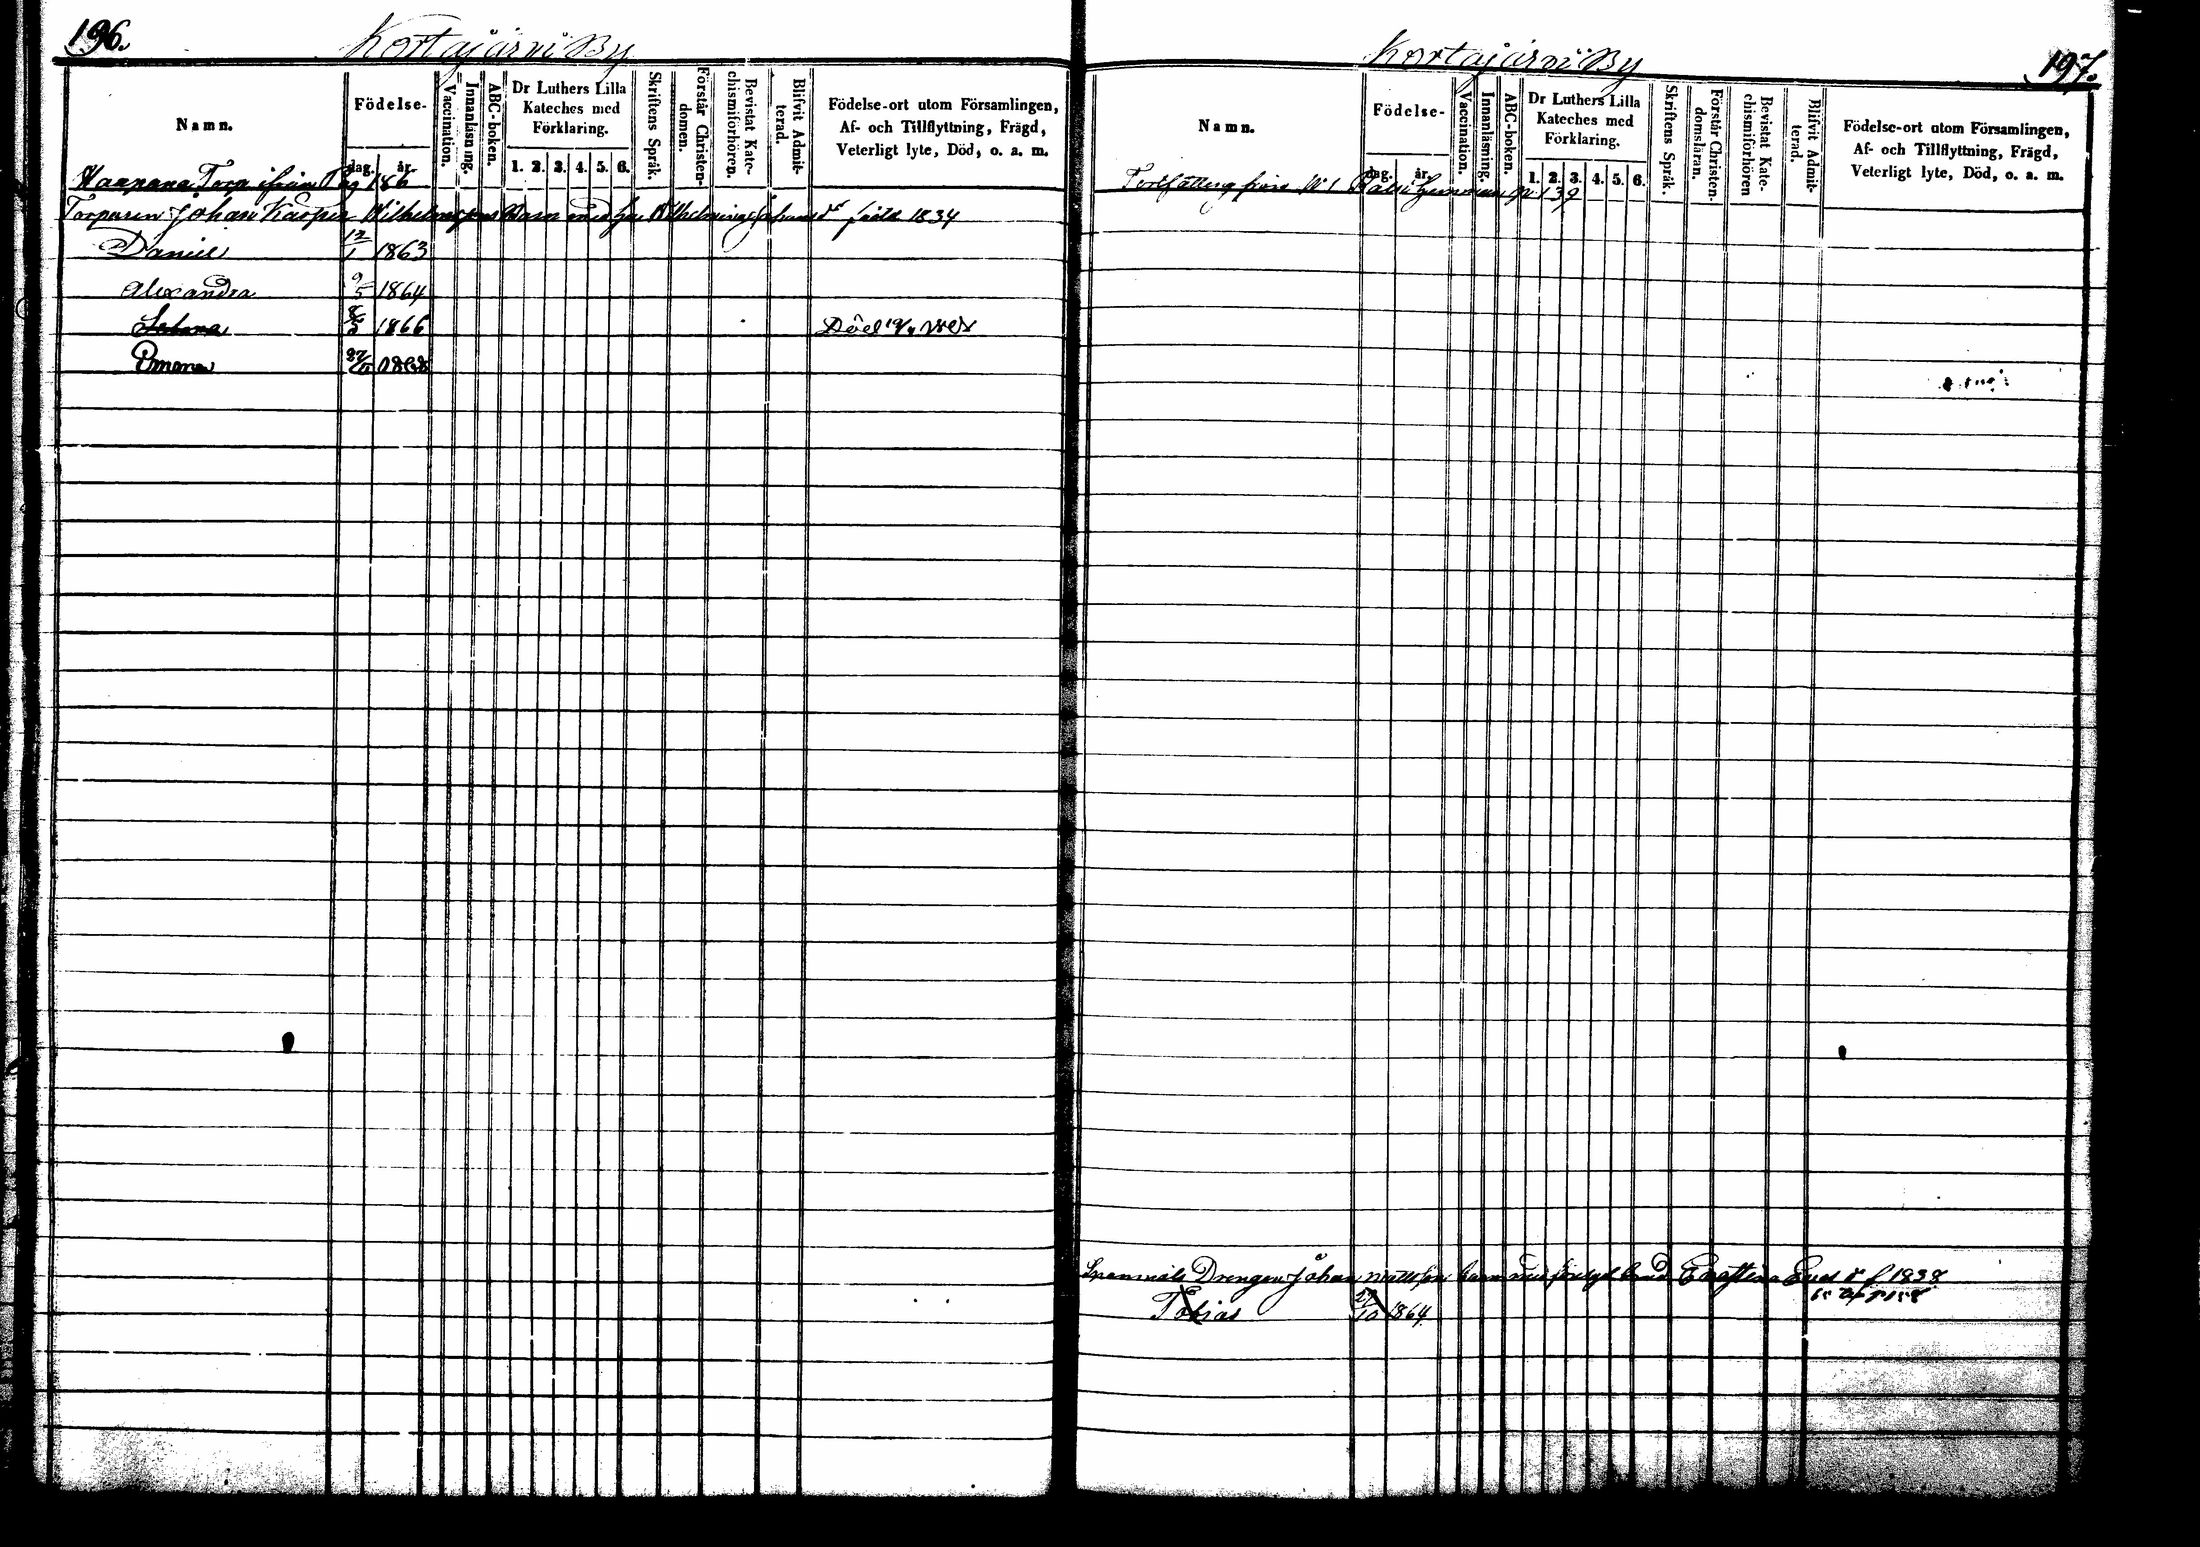 196.
Kortajärvi By
Namn.
Födelse-
dag.
år.
Vaccination.
Innanläsning.
ABC-boken.
Dr Luthers Lilla
Kateches med
Förklaring.
1. 2. 3. 4. 5. 6.
Skriftens Språk.
Förstår Christen-
domen.
Bevistat Kate-
chismiförhören.
Blifvit Admit-
terad.
Födelse-ort utom Församlingen,
Af- och Tillflyttning, Frägd,
Veterligt lyte, Död, o. a. m.
Torp ifrån Pag 186
Torparen Johan Karper Barn med h: född 1834
Daniel 12/1 1863
Alexandra 9/5 1864
1866 Död
27
Kortajärvi By
197.
Namn.
Födelse-
dag.
år.
Vaccination.
Innanläsning.
ABC-boken.
Dr Luthers Lilla
Kateches med
Förklaring.
1. 2. 3. 4. 5. 6.
Skriftens Språk.
Förstår Christen-
domsläran.
Bevistat Kate-
chismiförhören
Blifvit Admit-
terad.
Födelse-ort utom Församlingen,
Af- och Tillflyttning, Frägd,
Veterligt lyte, Död, o. a. m.
Fortsättng från N:1 Hemman p. 139
Drengen Johan barn med f 1838
Tobias 10 1864